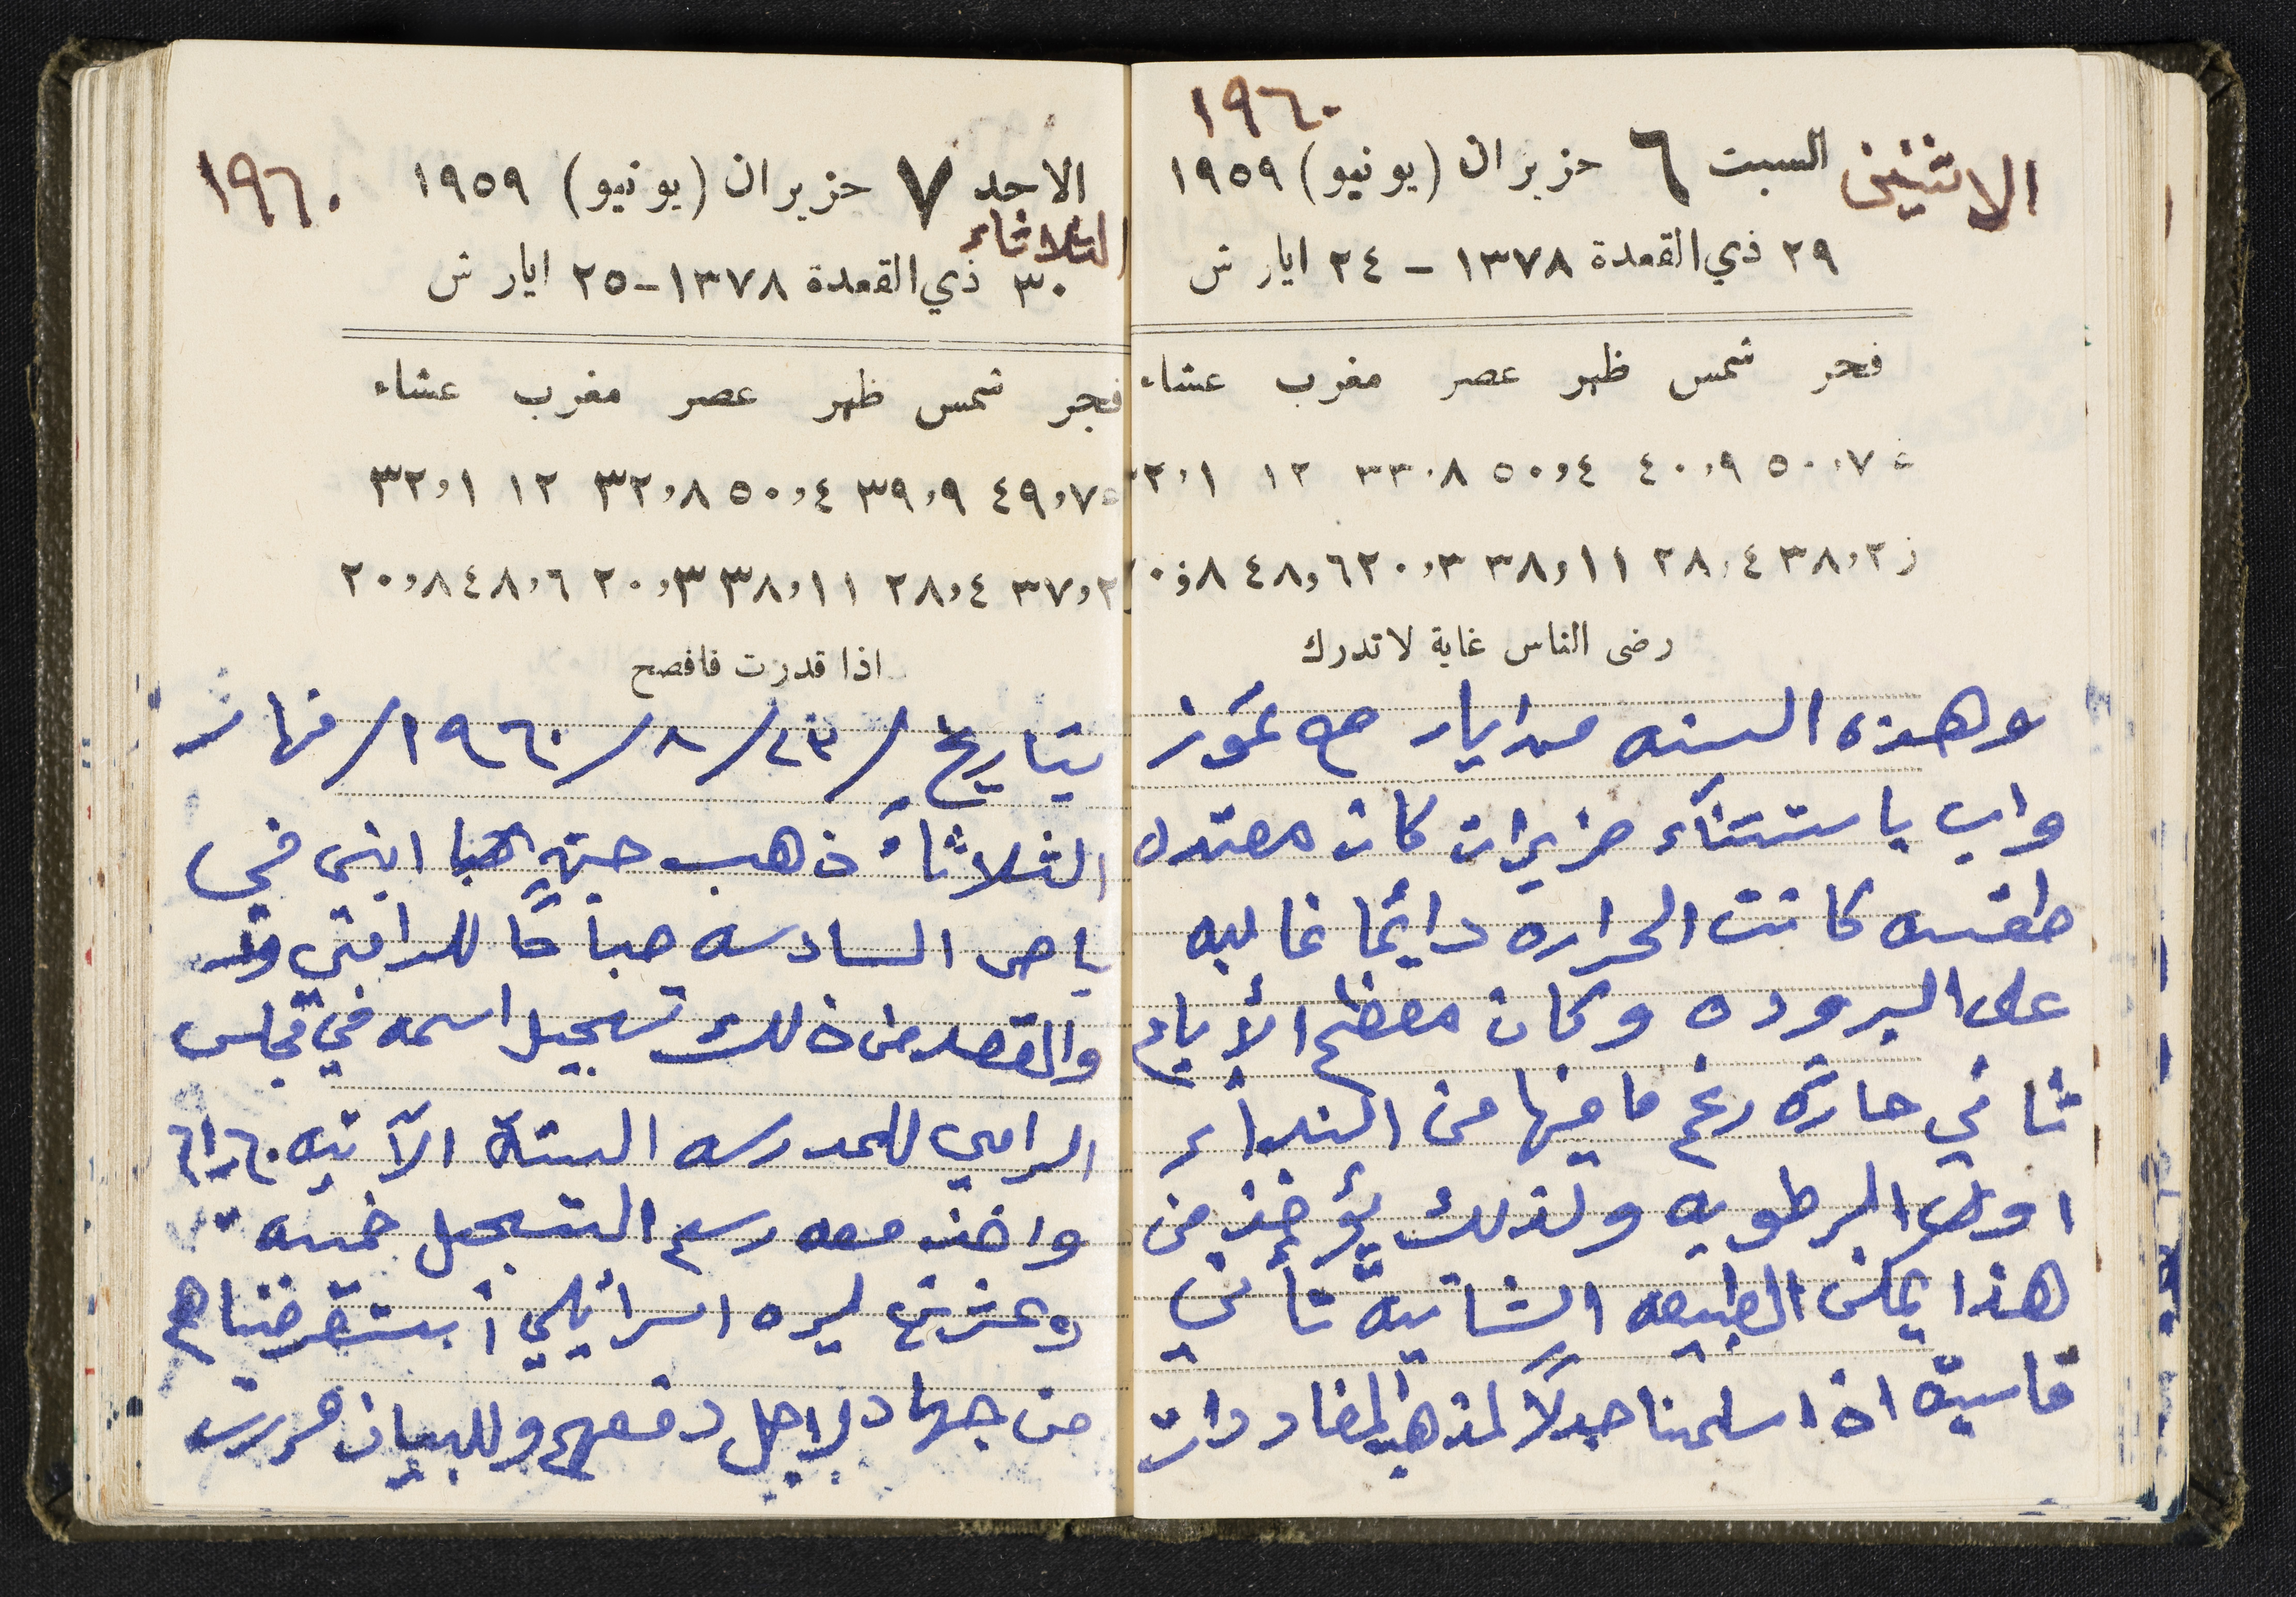 ١٩٦٠
الاثنين السبت ٦ حزيران (يونيو) ١٩٥٩
٢٩ ذي القعدة ١٣٧٨ - ٢٤ ايار ش
فجر شمس ظهر عصر مغرب عشاء
٥٠,٧ ٤٠,٩ ٥٠,٤ ٣٣,٨ ١٢ ٣٢,١
ز ٣٨,٢ ٢٨,٤ ٣٨,١١ ٢٠,٣ ٤٨,٦ ٢٠,٨
رضى الناس غاية لا تدرك
وهذه السنه من ايار مع تموز
واب باستثناء حزيران كان معتدل
طقسه كانت الحراره دائما غالبه
على البروده وكان معظم الأيام
ثاني حارة رغم ما فيها من النداء
او الرطوبه ولذلك يؤخذ من
هذا يمكن الطبيعه الشاتيه تأتي
قاسية اذا سلمنا جدلاً لمذهب
الاحد ٧ حزيران (يونيو) ١٩٥٩ ١٩٦٠
الثلاثاء
٣٠ ذي القعدة ١٣٧٨-٢٥ ايار ش
فجر شمس ظهر عصر مغرب عشاء
٤٩,٧ ٣٩,٩ ٥٠,٤ ٣٢,٨ ١٢ ٣٢,١
٣٧,٢ ٢٨,٤ ٣٨,١١ ٢٠,٣ ٤٨,٦ ٢٠,٨
اذا قدرت فافصح
بتاريخ /٢٣/٨/١٩٦٠/ نهار
الثلاثاء ذهب ابني في
باص السادسه صباحًا للرامي
والقصد من ذلك تسجيل اسمه في مجلس
الرامي للمدرسه السنة الآتيه ٦٠/٦١
واخذ معه رسم التسجيل خمسه
وعشرين ليره اسرائيلي استقرضناهم
من جهاد لاجل دفعهم وللبيان حررت